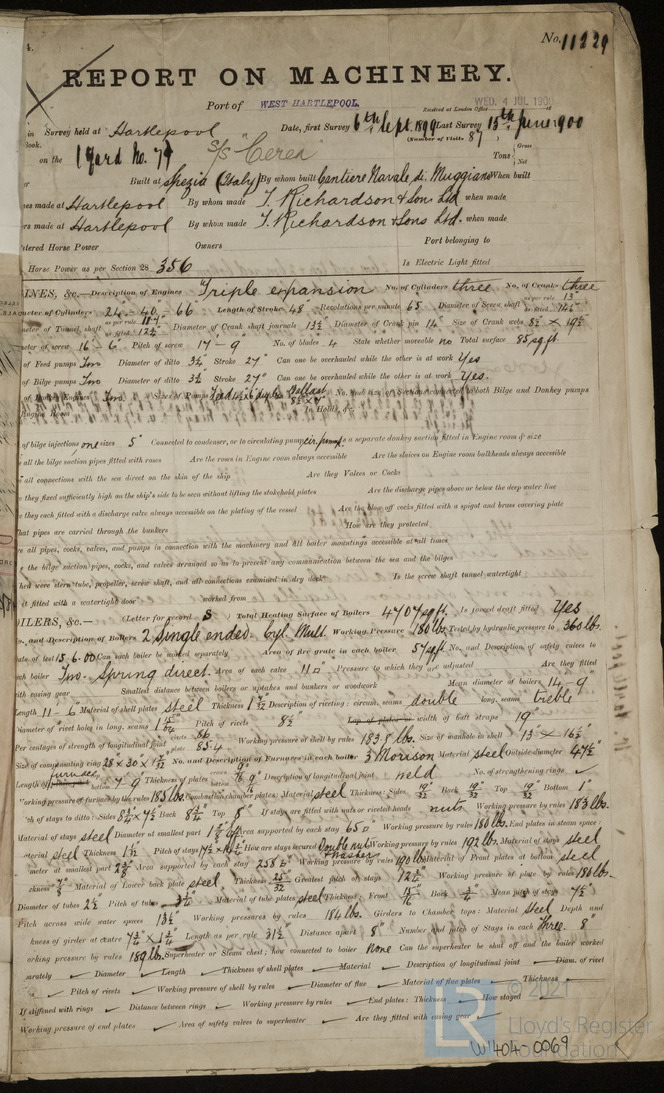 4.
No. 11229
REPORT ON MACHINERY.
Port of WEST HARTLEPOOL. Received at London Office WED. 4 JUL 1900
in Survey held at Hartlepool Date, first Survey 6th Sept. 1899 Last Survey 15th June 1900
Book. (Number of Visits 87)
on the Yard No. 79 S/S "Cerea" Tons Gross Net
Built at Spezia (Italy) By whom built Cantiere Navale di Muggiano When built
es made at Hartlepool By whom made T. Richardson & Sons Ltd when made
rs made at Hartlepool By whom made T. Richardson & Sons Ltd. when made
stered Horse Power Owners Port belonging to
Horse Power as per Section 28 356 Is Electric Light fitted
INES, &c.—Description of Engines Triple expansion No. of Cylinders three No. of Cranks three
meter of Cylinders 24 - 40 - 66 Length of Stroke 48" Revolutions per minute 65 Diameter of Screw shaft as per rule 13
meter of Tunnel shaft Diameter of Crank shaft journals 13½ Diameter of Crank pin 14" Size of Crank webs 8½ × 19½
meter of screw 16-6" Pitch of screw 17-9" No. of blades 4 State whether moveable no Total surface 85 sq ft.
of Feed pumps Two Diameter of ditto 3½ Stroke 27" Can one be overhauled while the other is at work Yes
of Bilge pumps Two Diameter of ditto 3½ Stroke 27" Can one be overhauled while the other is at work Yes.
both Bilge and Donkey pumps
In Holds, &c.
of bilge injections one sizes 5" Connected to condenser, or to circulating pump cir. pump a separate donkey suction fitted in Engine room & size
all the bilge suction pipes fitted with roses Are the roses in Engine room always accessible Are the sluices on Engine room bulkheads always accessible
all connections with the sea direct on the skin of the ship Are they Valves or Cocks
they fixed sufficiently high on the ship's side to be seen without lifting the stokehold plates Are the discharge pipes above or below the deep water line
e they each fitted with a discharge valve always accessible on the plating of the vessel Are the blow off cocks fitted with a spigot and brass covering plate
hat pipes are carried through the bunkers How are they protected
re all pipes, cocks, valves, and pumps in connection with the machinery and all boiler mountings accessible at all times
e the bilge suction pipes, cocks, and valves arranged so as to prevent any communication between the sea and the bilges
hed were stern tube, propeller, screw shaft, and all connections examined in dry dock Is the screw shaft tunnel watertight
it fitted with a watertight door worked from
OILERS, &c.— (Letter for record S) Total Heating Surface of Boilers 4707 sq ft. Is forced draft fitted Yes
No. and Description of Boilers 2 Single ended Cyl. Mult. Working Pressure 180 lbs. Tested by hydraulic pressure to 360 lbs.
ate of test 15.6.00 Can each boiler be worked separately Area of fire grate in each boiler 57 sq ft No. and Description of safety valves to
each boiler Two. Spring direct. Area of each valve 11 □" Pressure to which they are adjusted Are they fitted
with easing gear Smallest distance between boilers or uptakes and bunkers or woodwork Mean diameter of boilers 14-9"
Length 11-6" Material of shell plates steel Thickness Description of riveting: circum. seams double long. seams treble
Diameter of rivet holes in long. seams Pitch of rivets 8½ width of butt straps 19"
Per centages of strength of longitudinal joint 86 85.4 Working pressure of shell by rules 183.8 lbs. Size of manhole in shell 13" × 16½"
Size of compensating ring 28 × 30 × 1 No. and Description of Furnaces in each boiler 3 Morison Material steel Outside diameter 47½"
Length of furnace 7-9 Thickness of plates Description of longitudinal joint weld No. of strengthening rings
Working pressure of furnace by the rules 185 lbs. Combustion chamber plates: Material steel Thickness: Sides 19/32" Back 19/32" Top 19/32" Bottom 1"
Pitch of stays to ditto: Sides Back Top 8" If stays are fitted with nuts or riveted heads nuts Working pressure by rules 183 lbs.
Material of stays steel Diameter at smallest part Area supported by each stay 65 □" Working pressure by rules 180 lbs. End plates in steam space:
aterial steel Thickness Pitch of stays How are stays secured Double nuts & washer Working pressure by rules 192 lbs. Material of stays steel
meter at smallest part Area supported by each stay 258 Working pressure by rules 190 lbs. Material of Front plates at bottom steel
Material of Lower back plate steel Thickness Greatest pitch of stays Working pressure of plate by rules 186 lbs.
Diameter of tubes 2½" Pitch of tubes Material of tube plates steel Thickness: Front Back Mean pitch of stays 7½"
Pitch across wide water spaces 13½" Working pressures by rules 184 lbs. Girders to Chamber tops: Material steel Depth and
kness of girder at centre 7¾ × 1¾ Length as per rule 31½" Distance apart 8" Number and pitch of Stays in each three. 8"
orking pressure by rules 189 lbs. Superheater or Steam chest; how connected to boiler None Can the superheater be shut off and the boiler worked
parately Diameter Length Thickness of shell plates Material Description of longitudinal joint Diam. of rivet
Pitch of rivets Working pressure of shell by rules Diameter of flue Material of flue plates Thickness
If stiffened with rings Distance between rings Working pressure by rules End plates: Thickness How stayed
Working pressure of end plates Area of safety valves to superheater Are they fitted with easing gear
© 2021
LR
Lloyd's Register
Foundation
W1404-0069